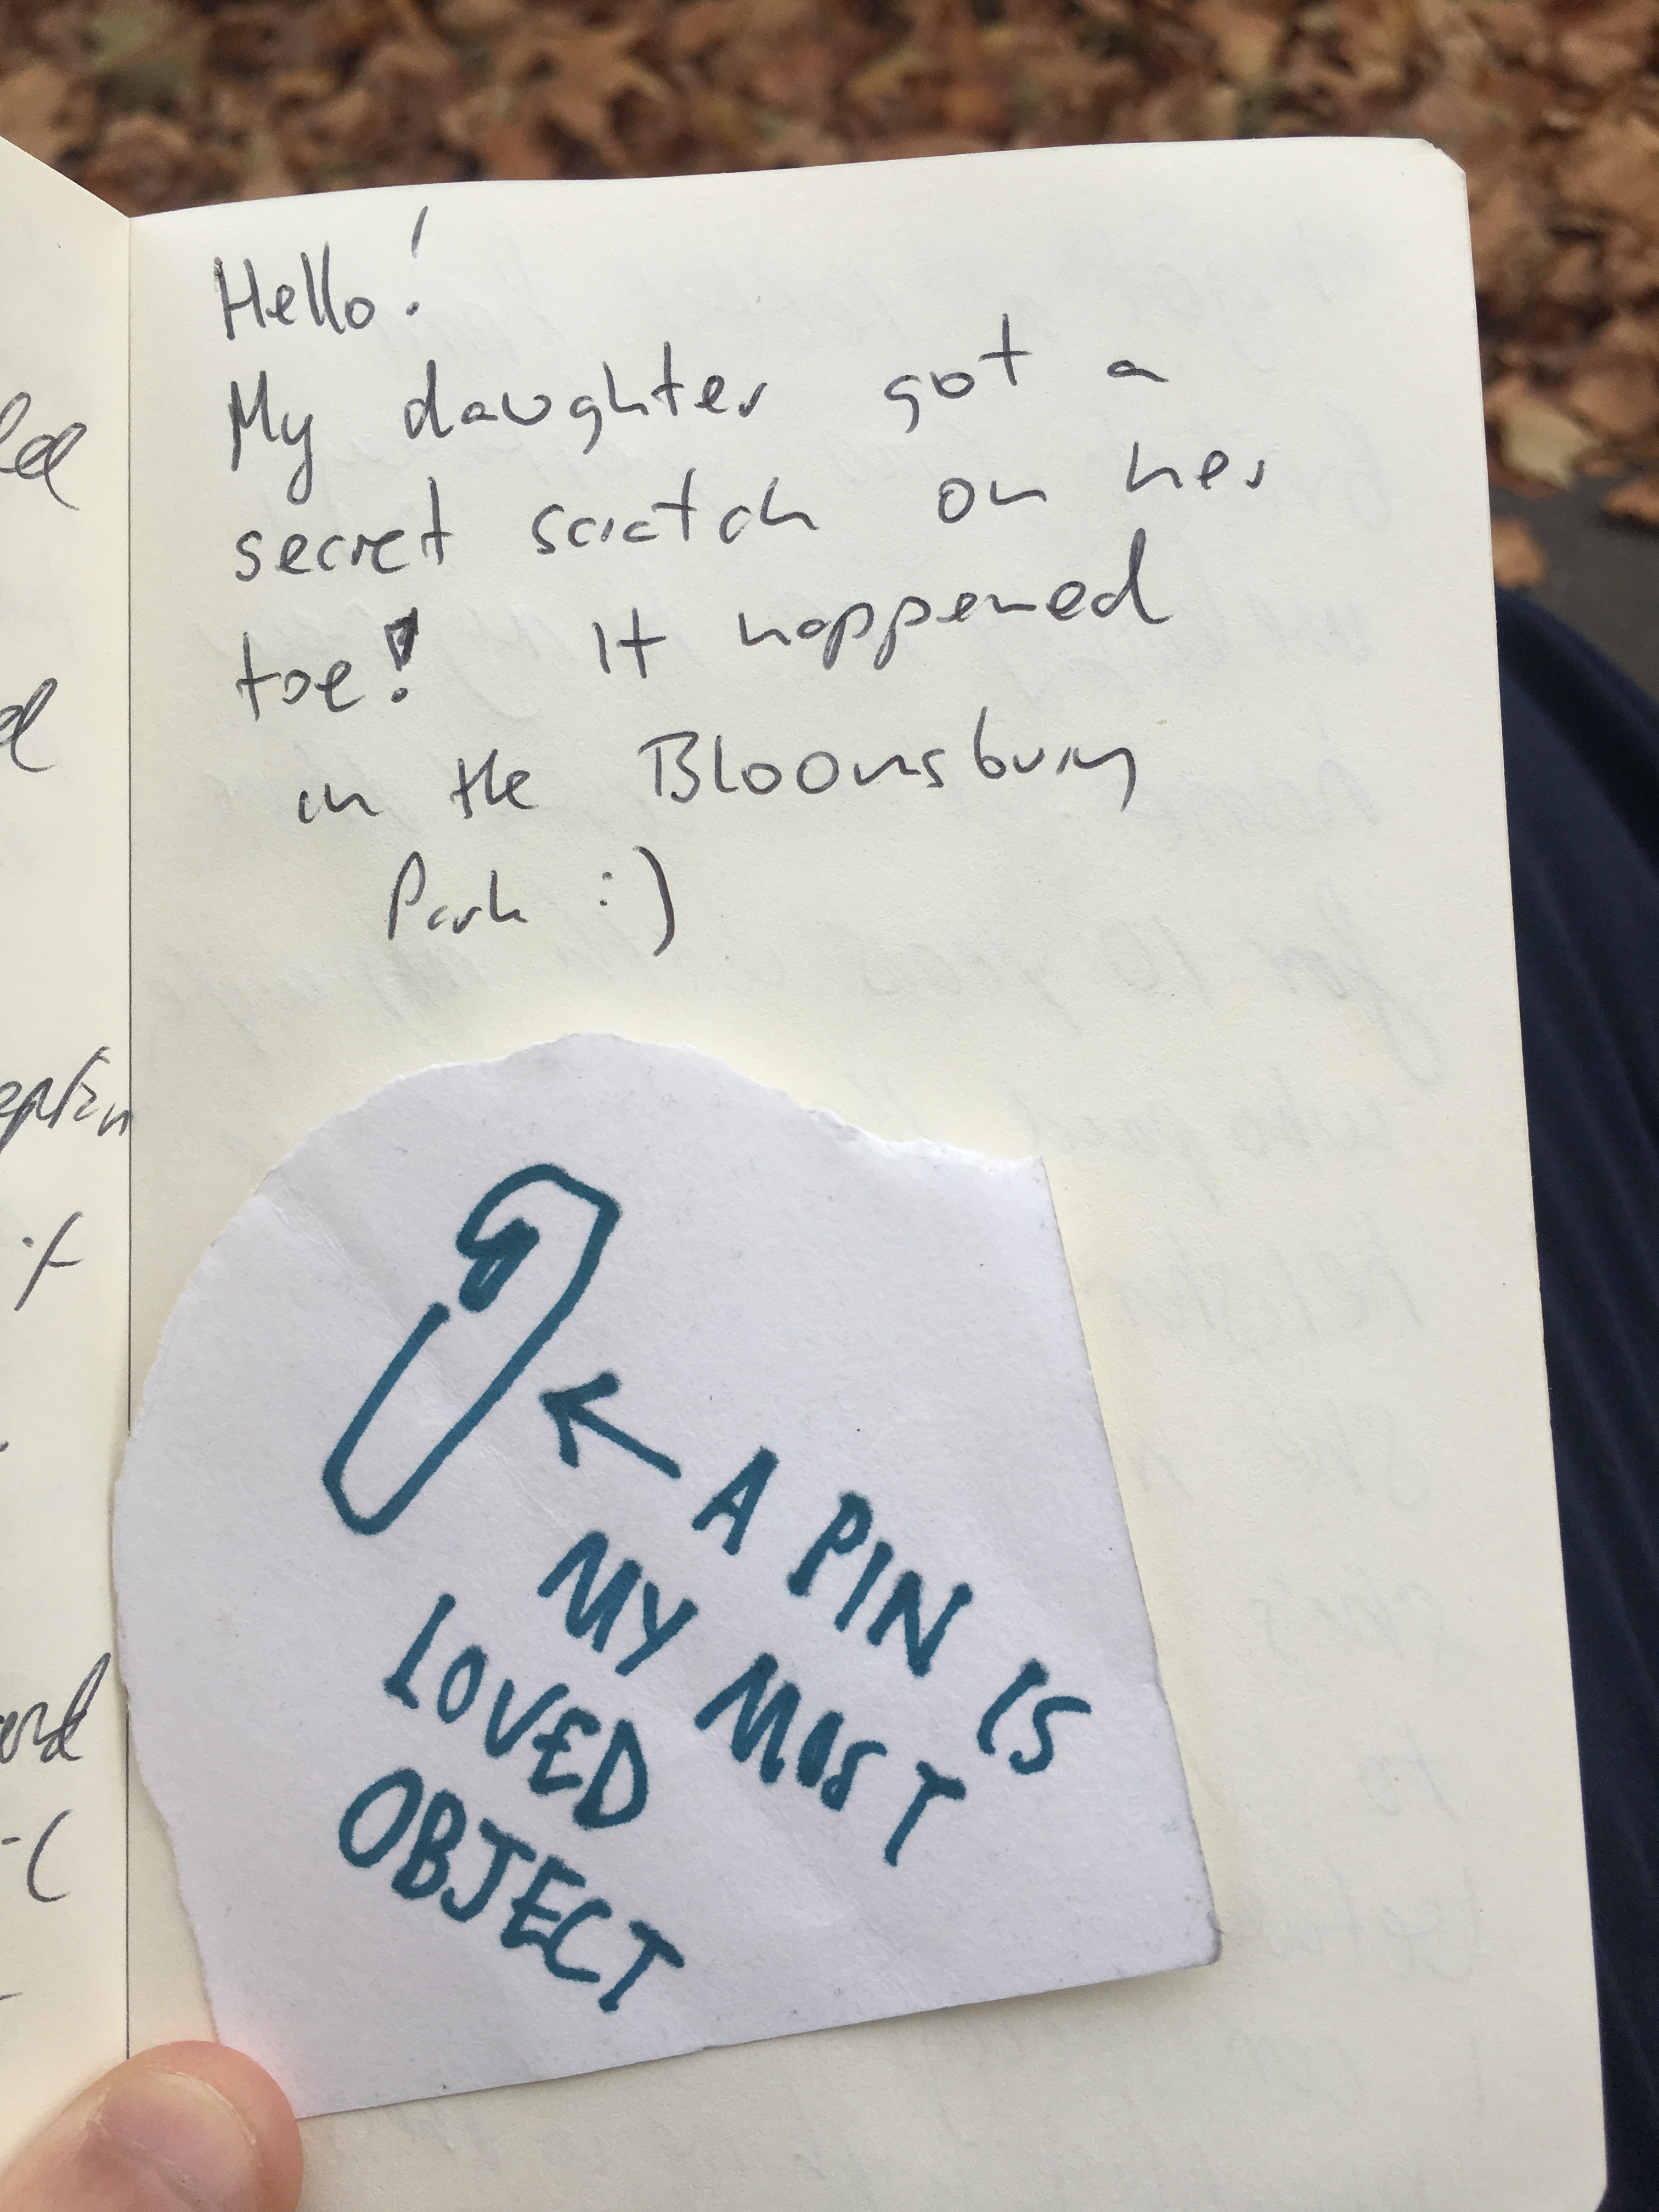 Hello!
My daughter got a
secret scratch on her
toe! It happened
in the Bloomsbury
Park :)
A PIN IS
MY MOST
LOVED
OBJECT